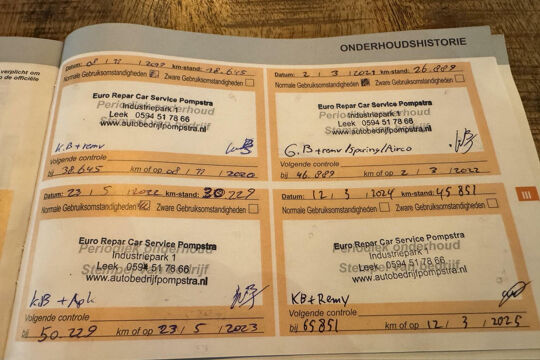 verplicht om
de officiële
ONDERHOUDSHISTORIE
Datum: 08 / 11 / km-stand: 18.645
Normale Gebruiksomstandigheden Zware Gebruiksomstandigheden
Periodiek onderhoud
Euro Repar Car Service Pompstra
Industriepark 1
Leek 0594 51 78 66
www.autobedrijfpompstra.nl
K.B + remv
Volgende controle
bij 38.645 km of op 08 / 11 / 2020
Datum: 2 / 3 / 2021 km-stand: 26.889
Normale Gebruiksomstandigheden Zware Gebruiksomstandigheden
Periodiek onderhoud
Euro Repar Car Service Pompstra
Industriepark 1
Leek 0594 51 78 66
www.autobedrijfpompstra.nl
G.B + remv / / Airco
Volgende controle
bij 46.889 km of op 2 / 3 / 2022
Datum: 23 / 5 / 2022 km-stand: 30.229
Normale Gebruiksomstandigheden Zware Gebruiksomstandigheden
Euro Repar Car Service Pompstra
Periodiek onderhoud
Industriepark 1
Leek 0594 51 78 66
Stempel van bedrijf
www.autobedrijfpompstra.nl
KB + Apk
Volgende controle
bij 50.229 km of op 23 / 5 / 2023
Datum: 12 / 3 / 2024 km-stand: 45.851
Normale Gebruiksomstandigheden Zware Gebruiksomstandigheden
Euro Repar Car Service Pompstra
Periodiek onderhoud
Industriepark 1
Leek 0594 51 78 66
Stempel van bedrijf
www.autobedrijfpompstra.nl
KB + Remv
Volgende controle
bij 65851 km of op 12 / 3 / 2025
III